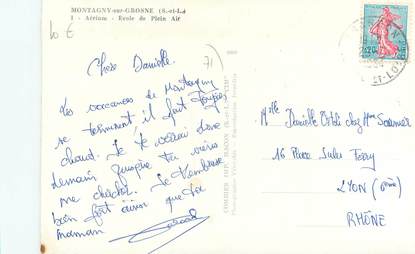 MONTAGNY-sur-GROSNE (S.-et-L.)
1 - Aérium - Ecole de Plein Air
10 €
71
Chère Danielle
Les vacances de Montagny
se terminent il fait toujours
chaud. Je te verrai donc
demain puisque tu viens
me chercher. Je t'embrasse
bien fort ainsi que ta
maman
COMBIER IMP. MACON
Mlle Danielle chez Mme
16 Place Jules Ferry
LYON (6ème)
RHÔNE
0,20